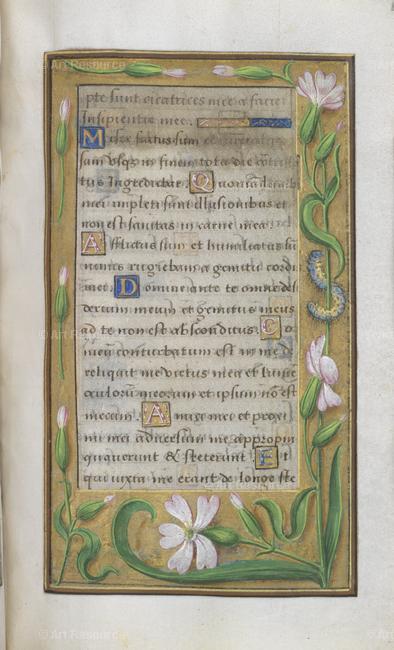 © Art Resource
pte sunt cicatrices mee a facie
insipientie mee.
Miser factus sum et curvatus
sum vsq; in finem tota die contrista
tus Ingrediebar. Quoniam lumbi
mei impleti sunt illusionibus et
non est sanitas in carne mea
Afflictus sum et humiliatus su
nimis rugiebam a gemitu cordis
mei. Domine ante te omne desi
derium meum et gemitus meus
a te non est absconditus. Co
meum conturbatum est in me de
reliquit me virtus mea et lume
oculorum meorum et ipsum no est
mecum. Amici mei et proxi
mi mei aduersum me appropin
quauerunt & steterunt Et
qui iuxta me erant de longe ste
© Art Resource